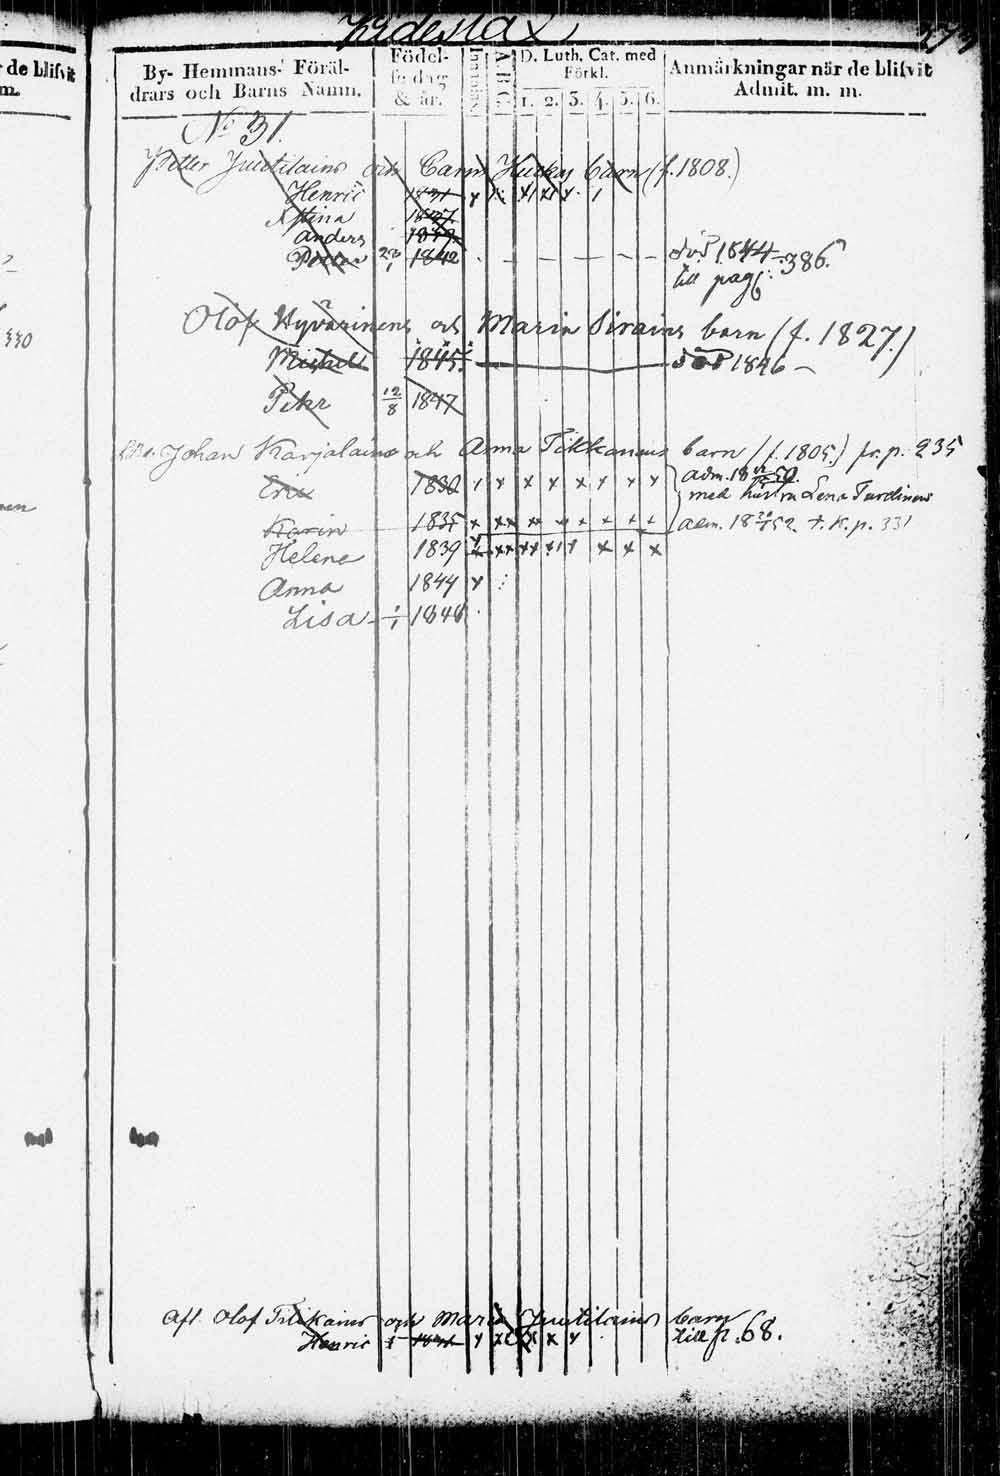 Kidesjax
373
de blifvit
m.
By- Hemmans- Föräl-
drars och Barns Namn.
Födel-
se dag
& år.
Innanläs.
A B C
D. Luth. Cat. med
Förkl.
1. 2. 3. 4. 5. 6.
Anmärkningar när de blifvit
Admit. m. m.
No 31.
Petter Juutilains och Carin barn (f. 1808.)
Henric 1831
Stina 1837.
Anders 1839.
Petter 1842 död 1844
till pag: 386.
Olof Hyvärinens och Maria Sirains barn (f. 1827.)
Michel 1845. död 1846
Pehr 12/8 1847
330
Johan Karjalains och Anna Tikkanens barn (f. 1805.) fr. p. 235
Eric 1830 adm. 18 50.
med hustru Lena Turdinens
Karin 1835 adm. 18 52. T. K. p. 331
Helena 1839
Anna 1844
Lisa 1/1 1848
Afl. Olof Tikkains och Maria Juutilains barn
Henric till p. 68.